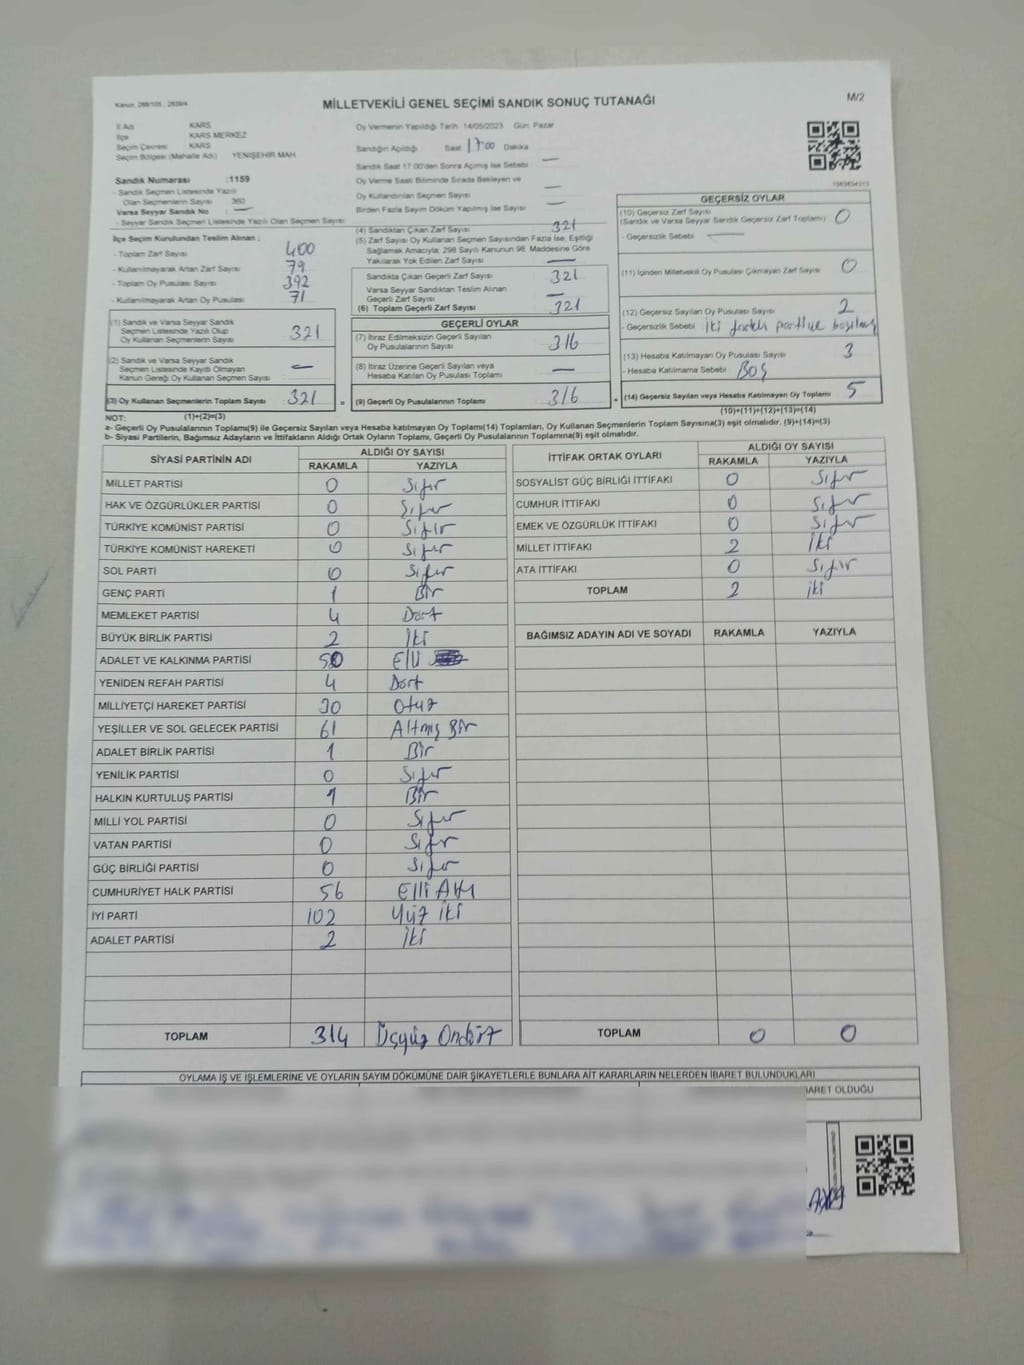 Kanun: 298/105 , 2839/4
MİLLETVEKİLİ GENEL SEÇİMİ SANDIK SONUÇ TUTANAĞI
M/2
İl Adı KARS
İlçe KARS MERKEZ
Seçim Çevresi KARS
Seçim Bölgesi (Mahalle Adı) YENİŞEHİR MAH
Sandık Numarası :1159
- Sandık Seçmen Listesinde Yazılı
Olan Seçmenlerin Sayısı 360
Varsa Seyyar Sandık No : —
- Seyyar Sandık Seçmen Listesinde Yazılı Olan Seçmen Sayısı:
İlçe Seçim Kurulundan Teslim Alınan ;
- Toplam Zarf Sayısı 400
- Kullanılmayarak Artan Zarf Sayısı 79
- Toplam Oy Pusulası Sayısı 392
- Kullanılmayarak Artan Oy Pusulası 71
(1) Sandık ve Varsa Seyyar Sandık
Seçmen Listesinde Yazılı Olup
Oy Kullanan Seçmenlerin Sayısı 321
(2) Sandık ve Varsa Seyyar Sandık
Seçmen Listesinde Kayıtlı Olmayan
Kanun Gereği Oy Kullanan Seçmen Sayısı —
(3) Oy Kullanan Seçmenlerin Toplam Sayısı 321 =
(1)+(2)=(3)
Oy Vermenin Yapıldığı Tarih: 14/05/2023 Gün: Pazar
Sandığın Açıldığı Saat 17:00 Dakika
Sandık Saat 17.00'den Sonra Açılmış İse Sebebi —
Oy Verme Saati Bitiminde Sırada Bekleyen ve
Oy Kullandırılan Seçmen Sayısı —
Birden Fazla Sayım Döküm Yapılmış İse Sayısı —
(4) Sandıktan Çıkan Zarf Sayısı 321
(5) Zarf Sayısı Oy Kullanan Seçmen Sayısından Fazla İse, Eşitliği
Sağlamak Amacıyla, 298 Sayılı Kanunun 98. Maddesine Göre
Yakılarak Yok Edilen Zarf Sayısı —
Sandıkta Çıkan Geçerli Zarf Sayısı 321
Varsa Seyyar Sandıktan Teslim Alınan
Geçerli Zarf Sayısı —
(6) Toplam Geçerli Zarf Sayısı 321
GEÇERLİ OYLAR
(7) İtiraz Edilmeksizin Geçerli Sayılan
Oy Pusulalarının Sayısı 316
(8) İtiraz Üzerine Geçerli Sayılan veya
Hesaba Katılan Oy Pusulası Toplamı —
(9) Geçerli Oy Pusulalarının Toplamı 316 +
GEÇERSİZ OYLAR
(10) Geçersiz Zarf Sayısı
(Sandık ve Varsa Seyyar Sandık Geçersiz Zarf Toplamı) 0
- Geçersizlik Sebebi —
(11) İçinden Milletvekili Oy Pusulası Çıkmayan Zarf Sayısı 0
(12) Geçersiz Sayılan Oy Pusulası Sayısı 2
- Geçersizlik Sebebi İki partiye basılmış
(13) Hesaba Katılmayan Oy Pusulası Sayısı 3
- Hesaba Katılmama Sebebi Boş
(14) Geçersiz Sayılan veya Hesaba Katılmayan Oy Toplamı 5
(10)+(11)+(12)+(13)=(14)
NOT:
a- Geçerli Oy Pusulalarının Toplamı(9) ile Geçersiz Sayılan veya Hesaba katılmayan Oy Toplamı(14) Toplamları, Oy Kullanan Seçmenlerin Toplam Sayısına(3) eşit olmalıdır. (9)+(14)=(3)
b- Siyasi Partilerin, Bağımsız Adayların ve İttifakların Aldığı Ortak Oyların Toplamı, Geçerli Oy Pusulalarının Toplamına(9) eşit olmalıdır.
SİYASİ PARTİNİN ADI ALDIĞI OY SAYISI
RAKAMLA YAZIYLA
MİLLET PARTİSİ 0 Sıfır
HAK VE ÖZGÜRLÜKLER PARTİSİ 0 Sıfır
TÜRKİYE KOMÜNİST PARTİSİ 0 Sıfır
TÜRKİYE KOMÜNİST HAREKETİ 0 Sıfır
SOL PARTİ 0 Sıfır
GENÇ PARTİ 1 Bir
MEMLEKET PARTİSİ 4 Dört
BÜYÜK BİRLİK PARTİSİ 2 İki
ADALET VE KALKINMA PARTİSİ 50 Elli
YENİDEN REFAH PARTİSİ 4 Dört
MİLLİYETÇİ HAREKET PARTİSİ 30 Otuz
YEŞİLLER VE SOL GELECEK PARTİSİ 61 Altmış Bir
ADALET BİRLİK PARTİSİ 1 Bir
YENİLİK PARTİSİ 0 Sıfır
HALKIN KURTULUŞ PARTİSİ 1 Bir
MİLLİ YOL PARTİSİ 0 Sıfır
VATAN PARTİSİ 0 Sıfır
GÜÇ BİRLİĞİ PARTİSİ 0 Sıfır
CUMHURİYET HALK PARTİSİ 56 Elli Altı
İYİ PARTİ 102 Yüz iki
ADALET PARTİSİ 2 İki
TOPLAM 314 Üçyüz Ondört
İTTİFAK ORTAK OYLARI ALDIĞI OY SAYISI
RAKAMLA YAZIYLA
SOSYALİST GÜÇ BİRLİĞİ İTTİFAKI 0 Sıfır
CUMHUR İTTİFAKI 0 Sıfır
EMEK VE ÖZGÜRLÜK İTTİFAKI 0 Sıfır
MİLLET İTTİFAKI 2 İki
ATA İTTİFAKI 0 Sıfır
TOPLAM 2 iki
BAĞIMSIZ ADAYIN ADI VE SOYADI RAKAMLA YAZIYLA
TOPLAM 0 0
OYLAMA İŞ VE İŞLEMLERİNE VE OYLARIN SAYIM DÖKÜMÜNE DAİR ŞİKAYETLERLE BUNLARA AİT KARARLARIN NELERDEN İBARET BULUNDUKLARI
BARET OLDUĞU